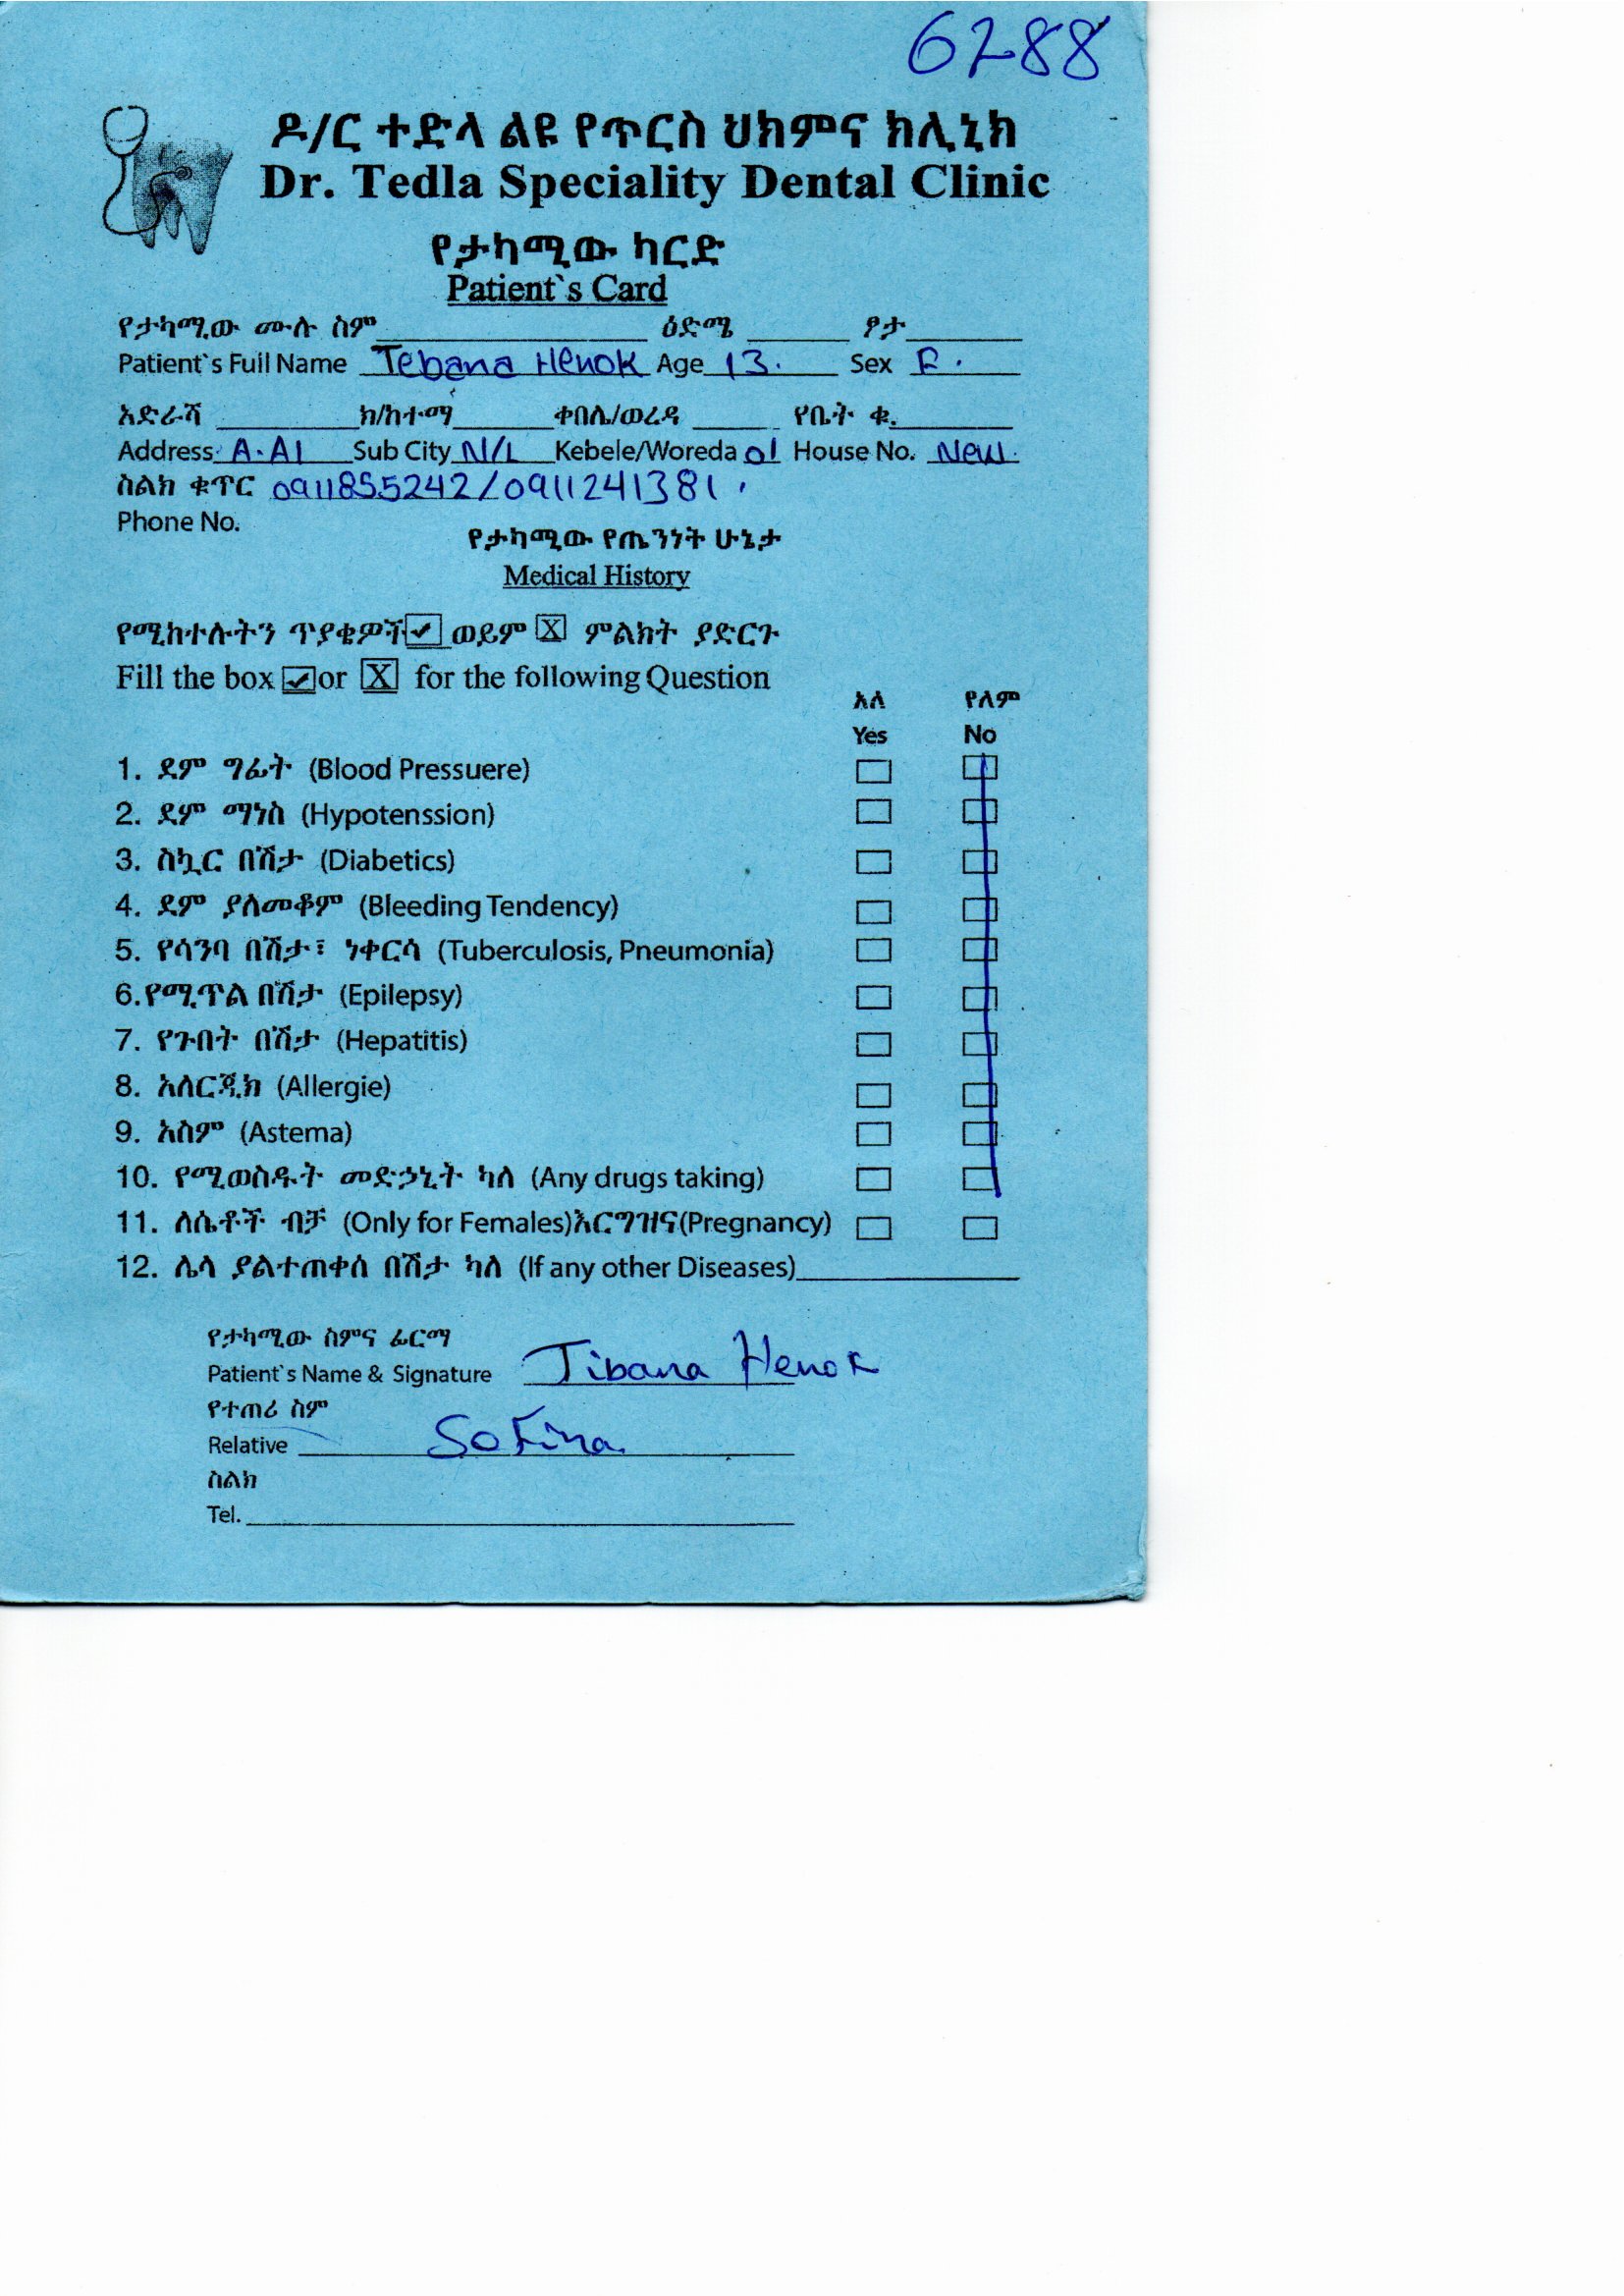 6288
ዶ/ር ተድላ ልዩ የጥርስ ህክምና ክሊኒክ
Dr. Tedla Speciality Dental Clinic
የታካሚው ካርድ
Patient`s Card
የታካሚው ሙሉ ስም ዕድሜ ፆታ
Patient`s Full Name Tebana Henok Age 13. Sex F.
አድራሻ ክ/ከተማ ቀበሌ/ወረዳ የቤት ቁ.
Address A.A Sub City N/L Kebele/Woreda 01 House No. New.
ስልክ ቁጥር 0911855242/0911241381.
Phone No.
የታካሚው የጤንነት ሁኔታ
Medical History
የሚከተሉትን ጥያቄዎች ✓ ወይም X ምልክት ያድርጉ
Fill the box ✓ or X for the following Question
አለ የለም
Yes No
1. ደም ግፊት (Blood Pressuere)
2. ደም ማነስ (Hypotenssion)
3. ስኳር በሽታ (Diabetics)
4. ደም ያለመቆም (Bleeding Tendency)
5. የሳንባ በሽታ፣ ነቀርሳ (Tuberculosis, Pneumonia)
6.የሚጥል በሽታ (Epilepsy)
7. የጉበት በሽታ (Hepatitis)
8. አለርጂክ (Allergie)
9. አስም (Astema)
10. የሚወስዱት መድኃኒት ካለ (Any drugs taking)
11. ለሴቶች ብቻ (Only for Females)እርግዝና(Pregnancy)
12. ሌላ ያልተጠቀሰ በሽታ ካለ (If any other Diseases)
የታካሚው ስምና ፊርማ
Patient`s Name & Signature Tibana Henok
የተጠሪ ስም
Relative Sofina
ስልክ
Tel.